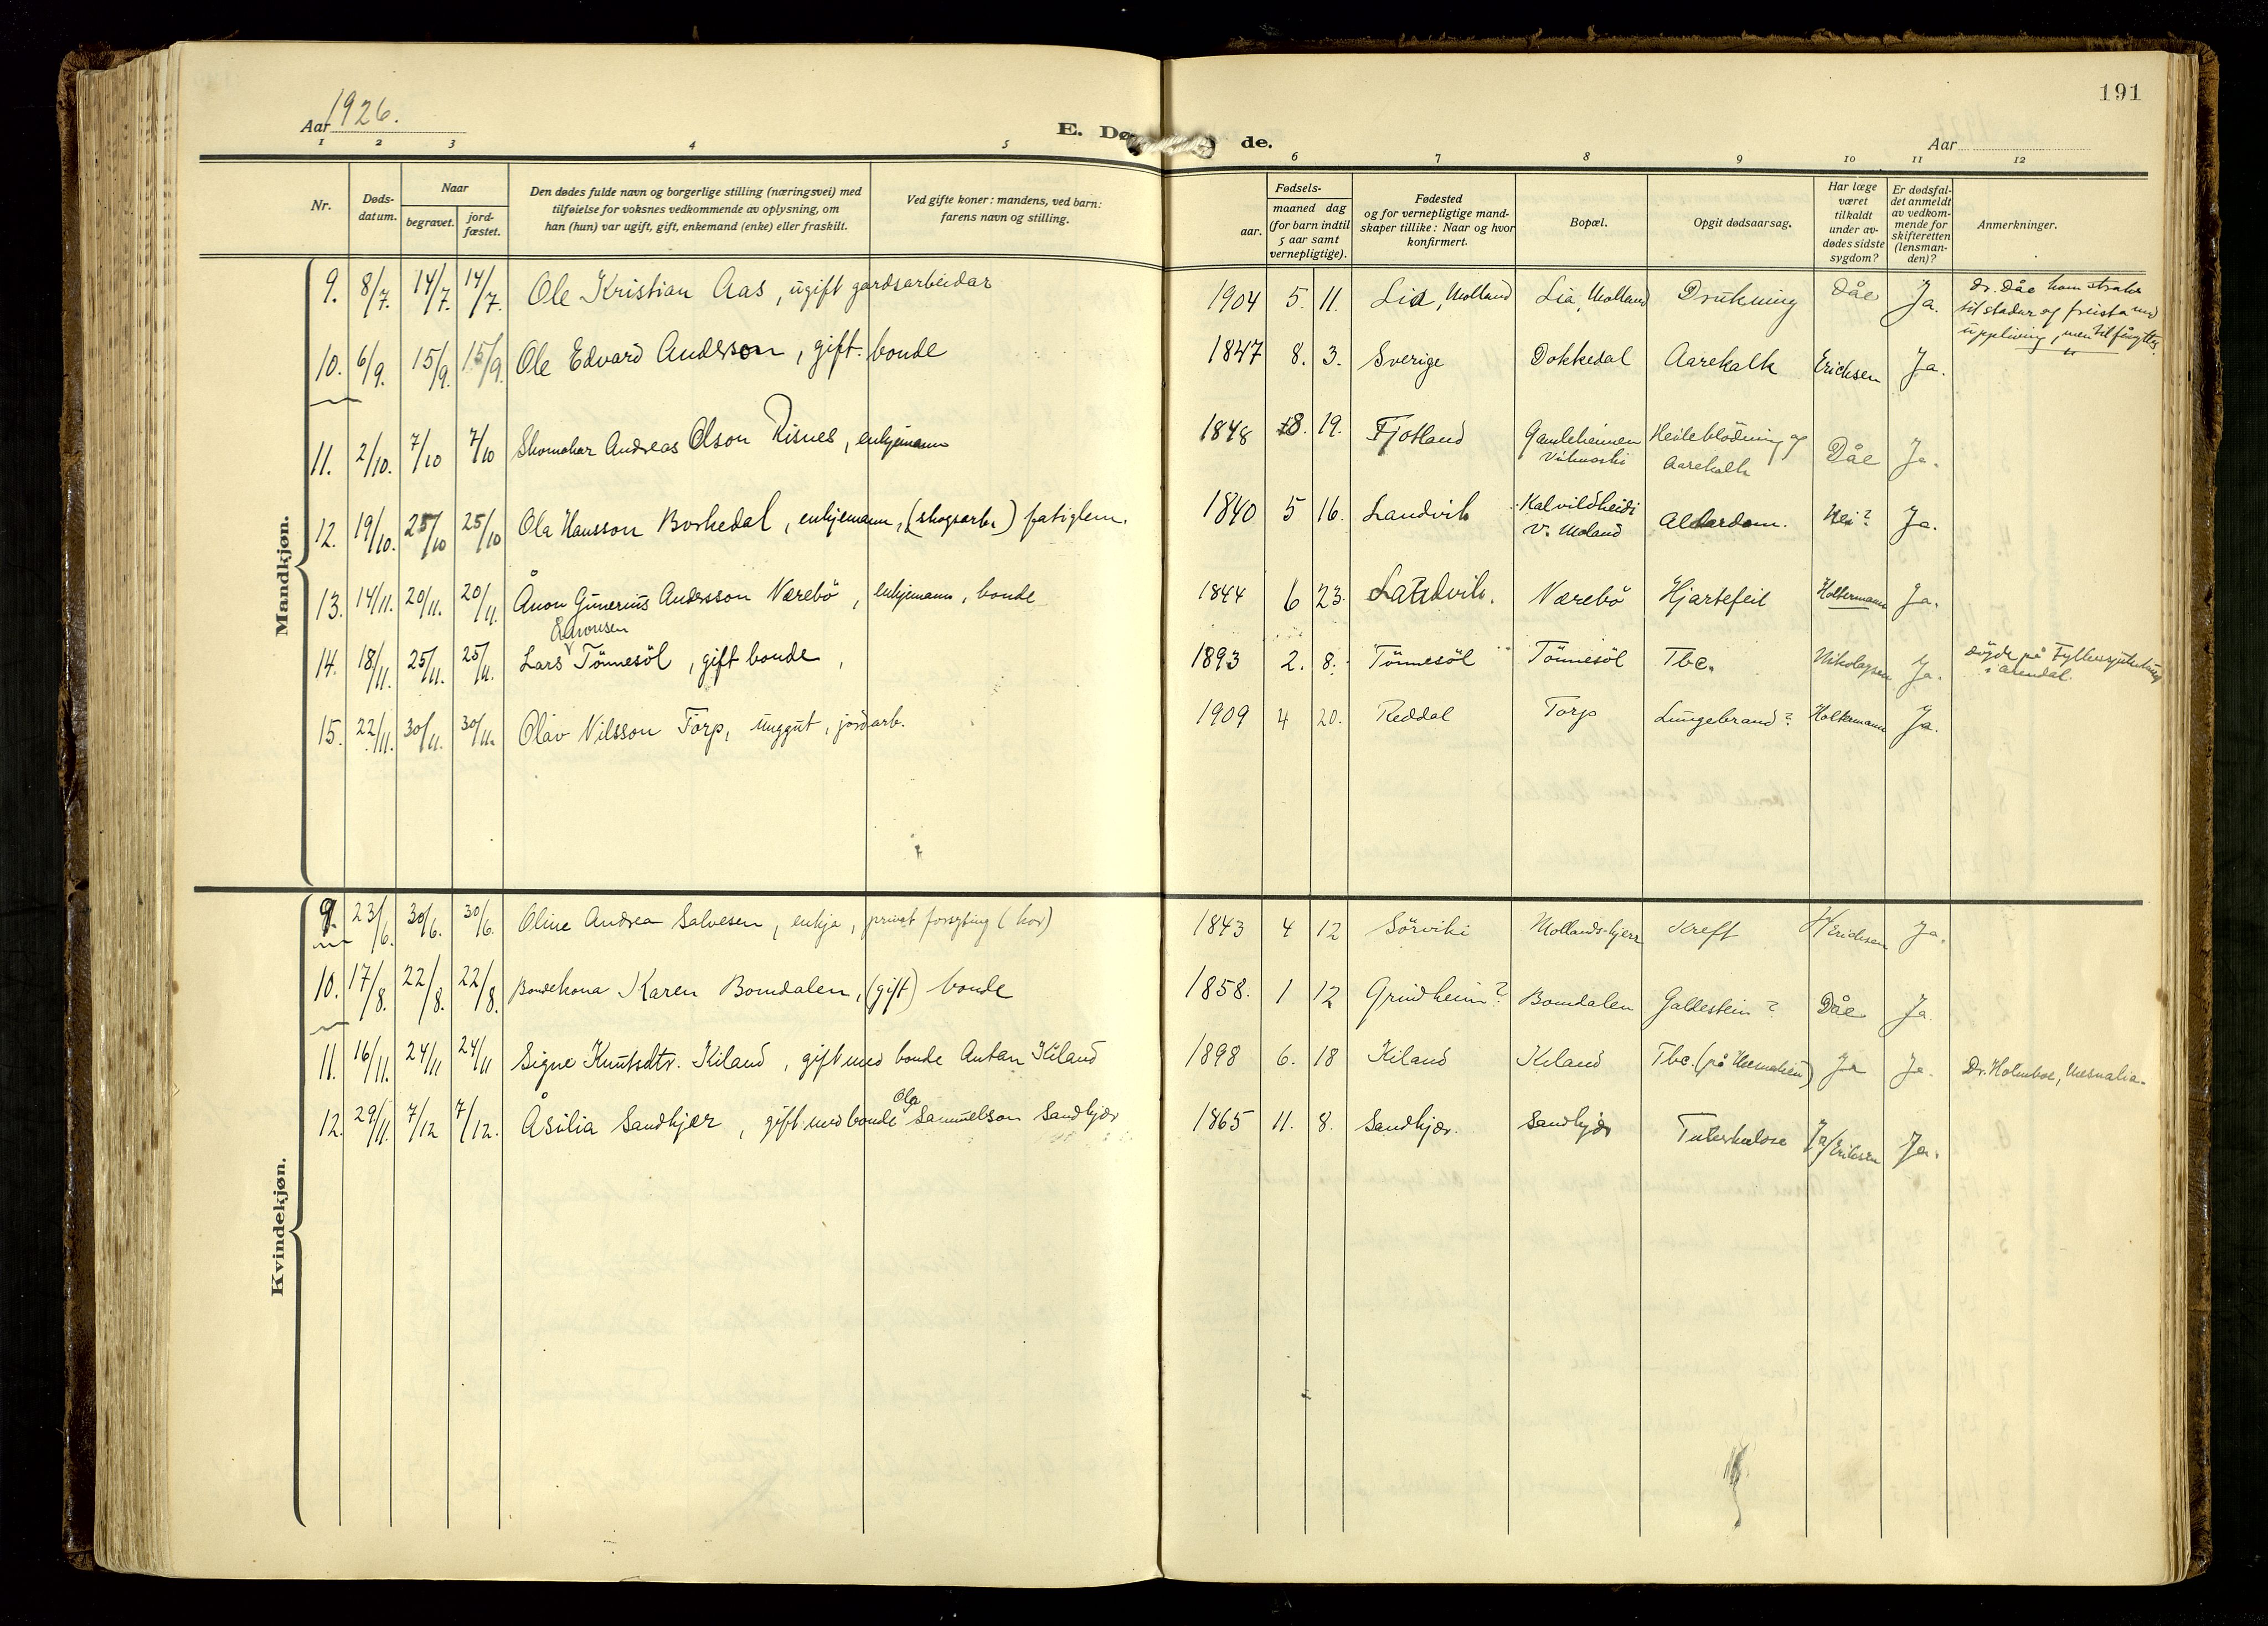 191
Aar 1926.
E. Dø de.
Aar
1 2 3 4 5 6 7 8 9 10 11 12
Nr.
Døds-datum.
Naar
begravet.
jord-fæstet.
Den dødes fulde navn og borgerlige stilling (næringsvei) med
tilføielse for voksnes vedkommende av oplysning, om
han (hun) var ugift, gift, enkemand (enke) eller fraskilt.
Ved gifte koner: mandens, ved barn:
farens navn og stilling.
Fødsels-
aar.
maaned dag
(for barn indtil
5 aar samt
vernepligtige).
Fødested
og for vernepligtige mand-
skaper tillike: Naar og hvor
konfirmert.
Bopæl.
Opgit dødsaarsag.
Har læge
været
tilkaldt
under av-
dødes sidste
sygdom?
Er dødsfal-
det anmeldt
av vedkom-
mende for
skifteretten
(lensman-
den)?
Anmerkninger.
Mandkjøn.
9. 8/7. 14/7. 14/7. Ole Kristian Aas, ugift gardsarbeidar 1904 5. 11. Lia, Molland Lia, Molland Drukning Dåe Ja. Dr. Dåe kom straks
til stader og freista med
uppliving, men til fåfyttes.
10. 6/9. 15/9. 15/9. Ole Edvard Anderson, gift bonde 1847 8. 3. Sverige Dokkedal Aarekalk Ericksen Ja.
11. 2/10. 7/10 7/10 Skomakar Andreas Olson Risnes, enkjemann 1848 8. 19. Fjotland Gamleheimen Heileblödning og
Aarekalk Dåe Ja.
12. 19/10. 25/10 25/10 Ola Hansson Borkedal, enkjemann, (skogsarb.) fatiglem. 1840 5 16. Landvik Kalvildheidi
V. Moland Alderdom. Nei? Ja.
13. 14/11. 20/11. 20/11. Ånon Gunerius Andersson Nærebö, enkjemann, bonde 1844 6 23. Landvik. Nærebö Hjartefeil Holtermann Ja.
14. 18/11. 25/11. 25/11. Lars Tönnesöl, gift bonde 1893 2. 8. Tönnesöl Tönnesöl Tbc. Nikolaysen Ja. Döyde på Fylkessjukehus
i Arendal.
15. 22/11. 30/11. 30/11. Olav Nilsson Torp, unggut, jordarb. 1909 4 20. Reddal Torp Lungebrand? Holtermann Ja.
Kvindekjøn.
9. 23/6. 30/6. 30/6. Oline Andrea Salvesen, enkja, privat forsyting (kor) 1843 4 12 Sörviki Mollands-kjerr Kreft Ericksen Ja.
10. 17/8. 22/8. 22/8. Bondekona Karen Bomdalen, (gift) bonde 1858. 1 12 Grindheim? Bomdalen Gallestein? Dåe Ja
11. 16/11. 24/11 24/11 Signe Knutsdtr. Kiland, gift med bonde Antan Kiland 1898 6. 18 Kiland Kiland Tbc. Ja Ja. Dr. Holmboe, Mesnalia.
12. 29/11. 7/12 7/12. Åsilia Sandkjær, gift med bonde Ola Samuelson Sandkjær 1865 11. 8. Sandkjær. Sandkjær Tuberkulose Ja/Eriksen Ja.